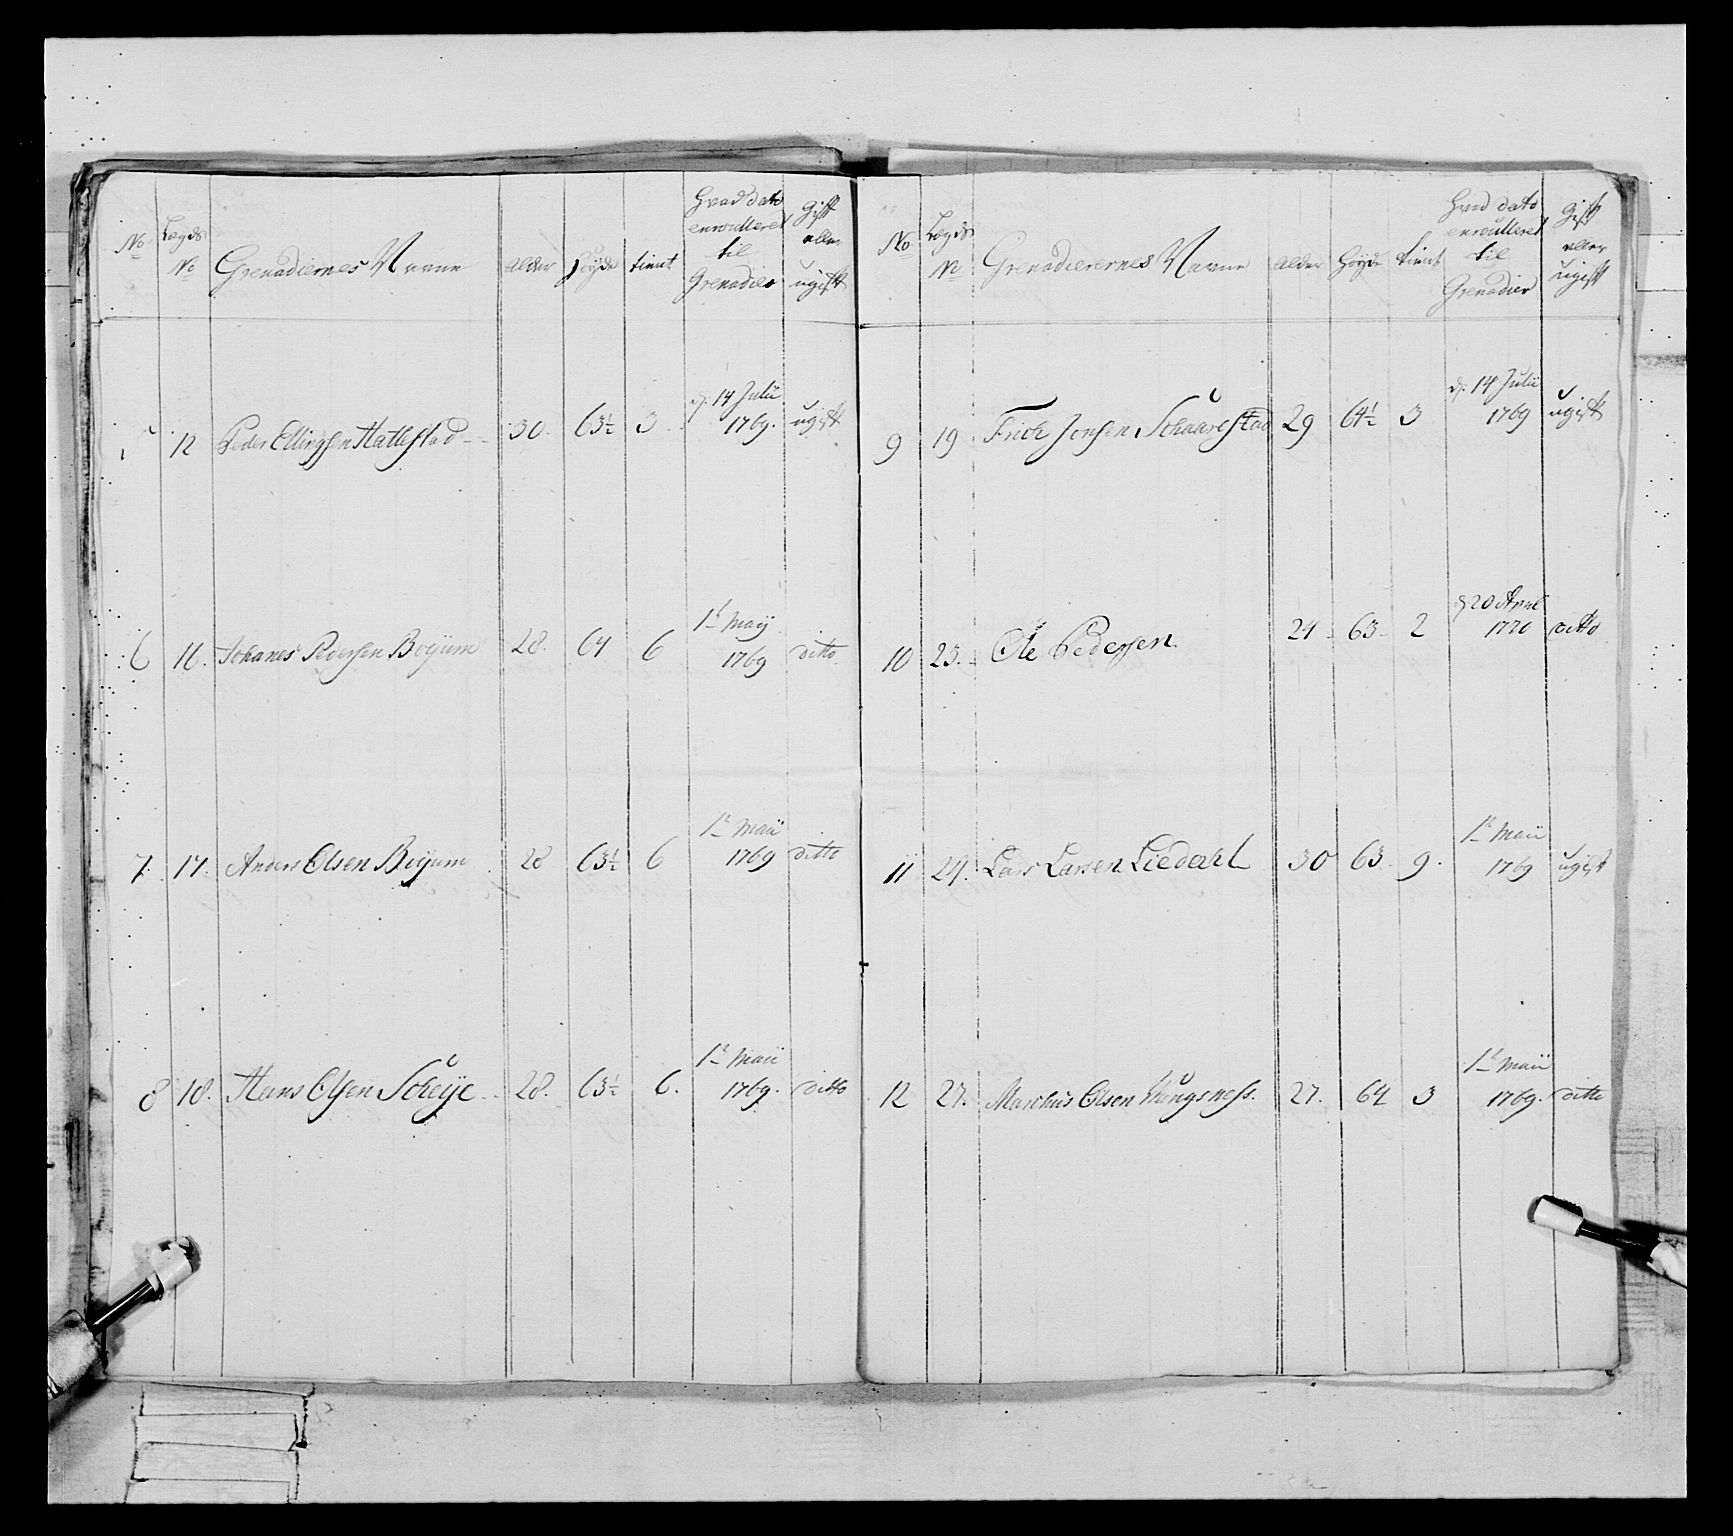 No Lægds No Grenadiernes Navne Alder Høyde tient Hvad dato enroulleret til Grenadier Gift eller ugift
5 12 Peder Ellingsen Hatlestad 30. 63½ 3 d. 14 Julii 1769. ugift
6 16. Johanes Pedersen Bøyum 28. 64 6 1te Maij 1769 ditto
7. 17. Anders Olsen Bøyum 28 63½ 6 1te Maii 1769 ditto
8 18. Hans Olsen Scheije 28. 63½ 6. 1te Maii 1769. ditto
No Lægds No Grenadierernes Navne Alder Høyde tient Hvad dato enroulleret til Grenadier Gift eller ugift
9 19 Frich Jensen Schaarestad 29 64½ 3 d. 14 Julii 1769 ugift
10 23. Ole Pedersen 24 63 2 d. 20 April 1770 ditto
11 24. Lars Larsen Liedahl 30 63 9. 1te Maii 1769 ugift
12 27. Marchus Olsen 27. 64 3 1te Maii 1769. ditto